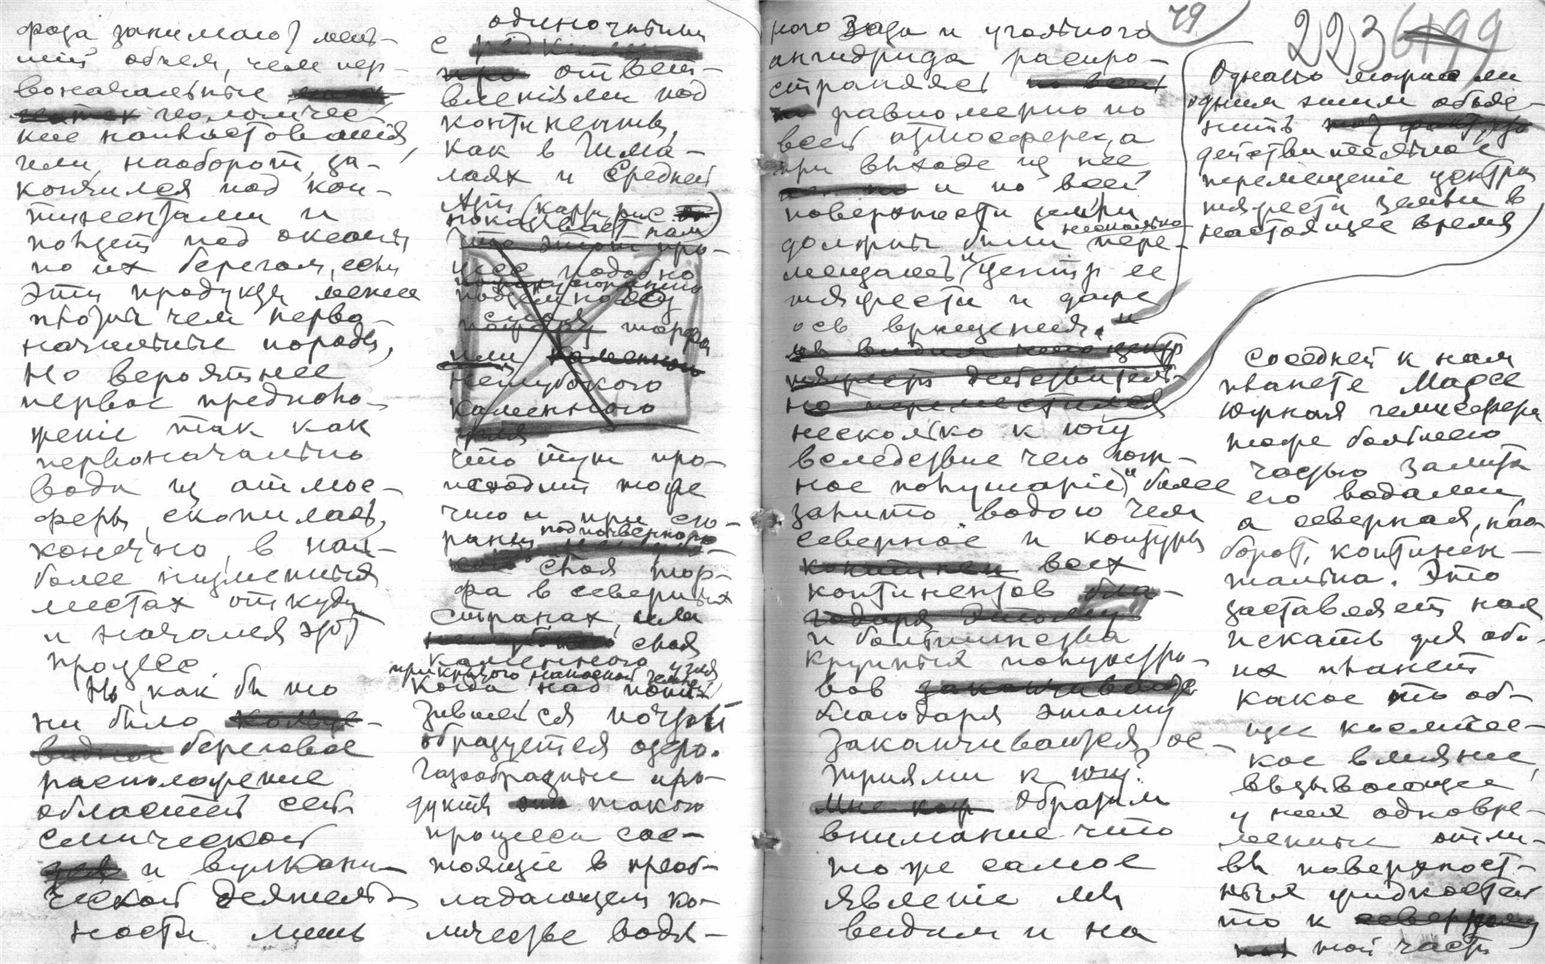 рода занимают мень-
ший объем, чем пер-
воначальные
геологичес-
кие напластования,
или, наоборот, за-
кончился под кон-
тинентами и
пойдет под океаны
по их берегам, если
эти продукты менее
плотны чем перво-
начальные породы,
Но вероятнее
первое предполо-
жение так как
первоначально
вода из атмос-
феры, скопилась,
конечно, в наи-
более низменных
местах откуда
и начался этот
процесс
Но, как бы то
ни было
береговое
расположение
областей сей-
смической
и вулкани-
ческой деятель-
ности лишь
одиночными
с
ответ-
влениями под
континенты,
как в Гима-
лаях и Средней
Азии (карта рис )
показывает нам
что этот про-
цесс подобно
подземному
торфа
или каменного
неглубокого
каменного
угля
что тут про-
исходит тоже
что и при сго-
рании подпочвенного
слоя тор-
фа в северных
странах, или
слоя
каменного угля
прикрытого наносной землей
Когда над
почвой
образуется озеро.
Газообразные про-
дукты такого
процесса сос-
тоящие в преоб-
ладающем ко-
личестве водя-
49
223
ного пара и угольного
ангидрида распро-
страняясь по всей
равномерно по
всей атмосфере, а
при выходе из нее
и по всей
поверхности земли
должны были несколько пере-
мещать и центр ее
тяжести и даже
ось вращения.
несколько к югу
вследствие чего юж-
ное полушарие и более
занято водою чем
северное и контуры
континен всех
континентов бла-
годаря этому
и большинства
крупных полуостро-
вов заканчивающ
благодаря этому
заканчиваются ос-
триями к югу?
Обратим
внимание что
то же самое
явление мы
видим и на
Однако можно ли
одним этим объяс-
нить
действительное
перемещение центра
тяжести земли в
настоящее время
соседней к нам
планете Марсе
Южная гемисфера
тоже большею
частью залита
его водами,
а северная, нао-
борот, континен-
тальна. Это
заставляет нас
искать для обе-
их планет
какое то об-
щее космичес-
кое влияние,
вызывающее
у них одновре-
менные отли-
вы поверхност-
ных жидкостей
то к северной
той части